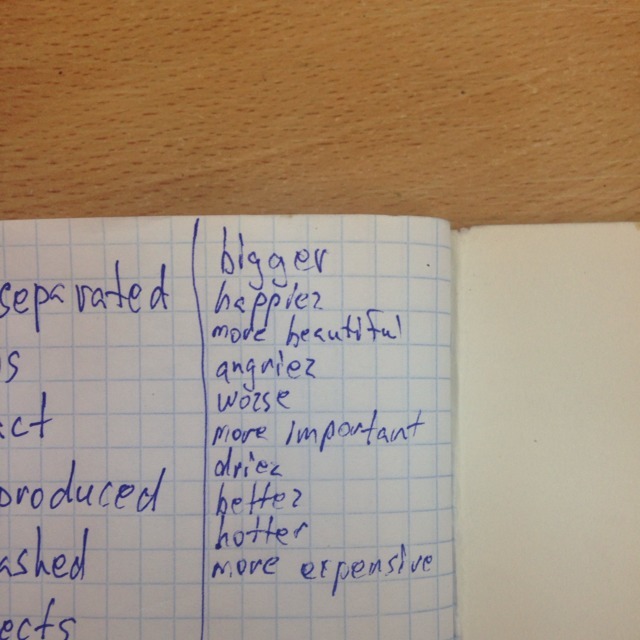 separated
s
act
produced
ashed
ects
bigger
happier
more beautiful
angrier
worse
more important
drier
better
hotter
more expensive